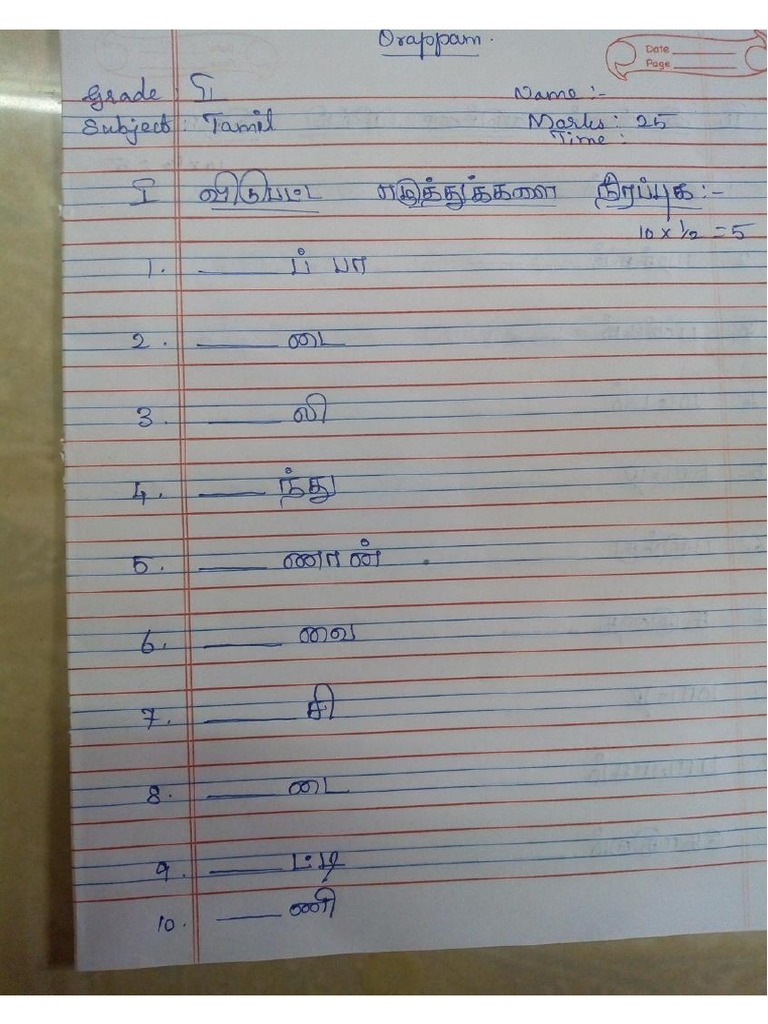 Orappam.
Date
Page
Grade : I Name :-
Subject : Tamil Marks : 25
Time :
I விடுபட்ட எழுத்துக்களை நிரப்புக :-
10 x 1/2 = 5
1. ______ ப் பா
2. ______ டை
3. ______ லி
4. ______ ந்து
5. ______ ணான்
6. ______ வை
7. ______ சி
8. ______ டை
9. ______ ட்டி
10. ______ ணி